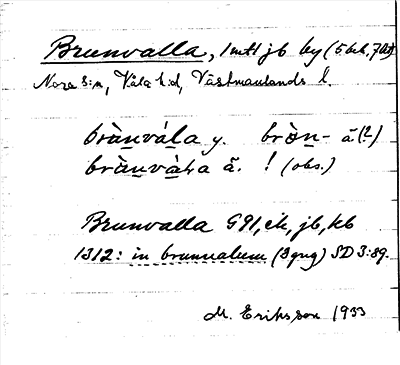 Brunvalla, 1 mtl jb by (5 brk, 7 lät)
Nora s:n, Våla h:d, Västmanlands l.
brànvála y. bròn- ä (?)
brànvàla ä. ! (obs.)
Brunvalla G91, ek, jb, kb
1312: in brunualum (3 gng) SD 3:89.
M. Eriksson 1933